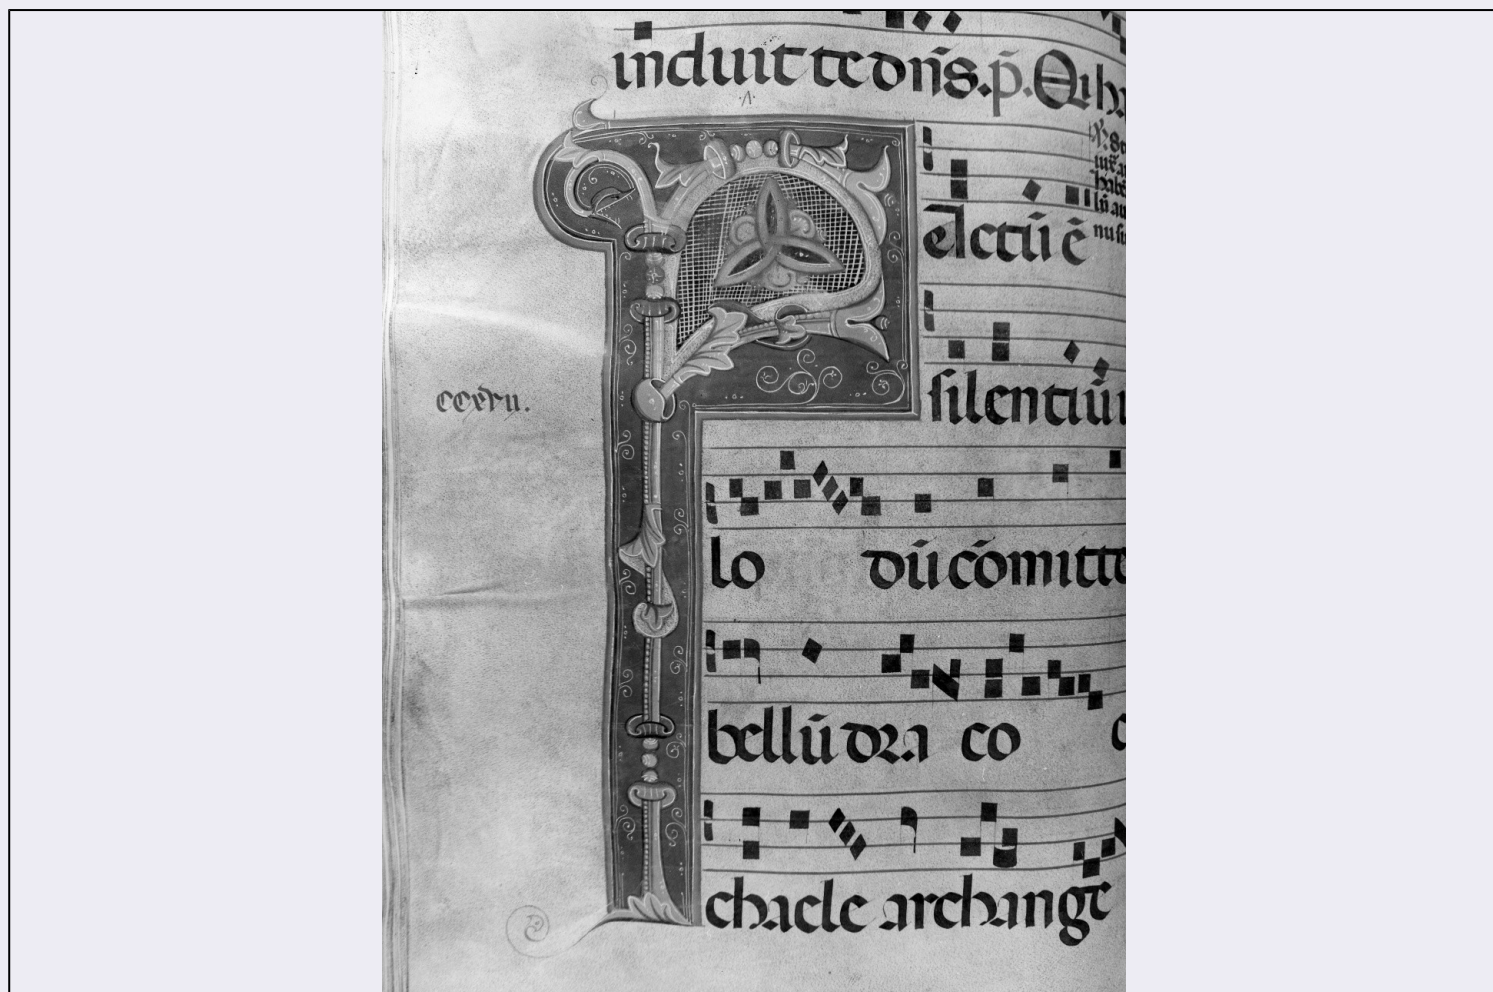 induit te dn̄s. p̄. Q
eƚctū ē
silentiū
lo dū cōmitte
bellū dra co
chaele archange